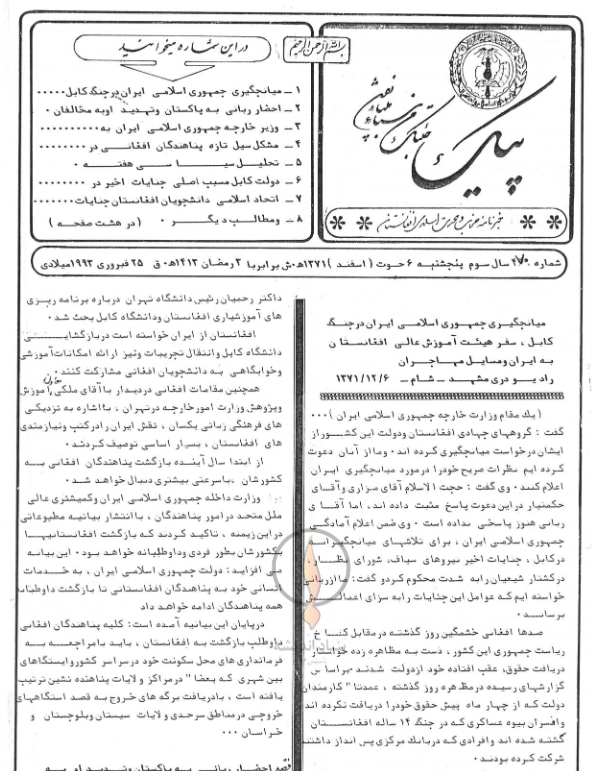 بسم الله الرحمن الرحیم
در این شماره میخوانید
۱ ـ میانجگیری جمهوری اسلامی ایران درجنگ کابل۰۰۰۰۰
۲ ـ احضار ربانی به پاکستان وتهدید اوبه مخالفان ۰
۳ ـ وزیر خارجه جمهوری اسلامی ایران به۰۰۰۰۰۰۰۰۰۰
۴ ـ مشکل سیل تازه پناهندگان افغانی در ۰۰۰۰۰۰۰۰۰
۵ ـ تحلیل سیاسی هفته ۰
۶ ـ دولت کابل مسبب اصلی جنایات اخیر در ۰۰۰۰۰۰۰۰
۷ ـ اتحاد اسلامی دانشجویان افغانستان جنایات۰۰۰۰۰۰۰
۸ ـ ومطالب دیگر ۰ (در هشت صفحه)
پیک
خبرنامه
افغانستان
شماره ۴۷۰ سال سوم پنجشنبه ۶ حوت (اسفند) ۱۳۷۱ه‍۰ش برابربا ۳ رمضان ۱۴۱۳ه‍۰ق ۲۵ فبروری ۱۹۹۳میلادی
میانجگیری جمهوری اسلامی ایران درجنگ
کابل ، سفر هیئت آموزش عالی افغانستان
به ایران ومسایل مهاجران
رادیو دری مشهد ـ شام ـ ۱۳۷۱/۱۲/۶
(یك مقام وزارت خارجه جمهوری اسلامی ایران )۰۰۰
گفت : گروههای جهادی افغانستان ودولت این کشوراز
ایشان درخواست میانجگیری کرده اند، وماازآنان دعوت
کرده ایم نظرات صریح خودرا درمورد میانجیگری ایران
اعلام کنند۰ وی گفت : حجت الاسلام آقای مزاری وآقای
حکمتیار دراین دعوت پاسخ مثبت داده اند، اما آقای
ربانی هنوز پاسخی نداده است ۰ وی ضمن اعلام آمادگی
جمهوری اسلامی ایران ، برای تلاشهای میانجگرانه
درکابل ، جنایات اخیر نیروهای سیاف، شورای نظار،
درکشتار شیعیان رابه شدت محکوم کرد و گفت: ماازربانی
خواسته ایم که عوامل این جنایات رابه سزای اعمالش
برساند۰
صدها افغانی خشمگین روز گذشته درمقابل کاخ
ریاست جمهوری این کشور، دست به مظاهره زده خواستار
دریافت حقوق، عقب افتاده خود ازدولت شدند۰ براساس
گزارشهای رسیده درمظاهره روز گذشته ، عمدتا" کارمندان
دولت که از چهار ماه پیش حقوق خودرا دریافت نکرده اند
وافسران بیوه عساکری که در جنگ ۱۴ ساله افغانستان
کشته شده اند وافرادی که دربانك مرکزی پس انداز داشتند
شرکت کرده بودند۰
داکتر رحمیان رئیس دانشگاه تهران درباره برنامه ریزی
های آموزشیاری افغانستان ودانشگاه کابل بحث شد۰
افغانستان از ایران خواسته است دربازگشایی
دانشگاه کابل وانتقال تجربیات ونیز ارائه امکانات آموزشی
وخوابگاهی به دانشجویان افغانی مشارکت کنند۰
همچنین مقامات افغانی دردیدار باآقای ملکی آموزش
وپژوهش وزارت امورخارجه درتهران ، بااشاره به نزدیکی
های فرهنگی زبانی یکسان ، نقش ایران رادرکتب ونیازمندی
های افغانستان ، بسیار اساسی توصیف کردند۰
از ابتدا سال آینده بازگشت پناهندگان افغانی به
کشورشان باسرعتی بیشتری دنبال خواهد شد۰
وزارت داخله جمهوری اسلامی ایران وکمیشنری عالی
ملل متحد درامور پناهندگان ، باانتشار بیانیه مطبوعاتی
دراین زمینه ، تاکید کردند که بازگشت افغانستانیها
بکشورشان بطور فردی وداوطلبانه خواهد بود۰ این بیانیه
می افزاید: دولت جمهوری اسلامی ایران ، به خدمات
انسانی خود به پناهندگان افغانستانی تا بازگشت داوطلبانه
همه پناهندگان ادامه خواهد داد
درپایان این بیانیه آمده است: کلیه پناهندگان افغانی
داوطلب بازگشت به افغانستان ، باید بامراجعه به
فرمانداری های محل سکونت خود درسراسر کشور وایستگاهای
بین شهری که بعضا " درمراکز ولایات پناهنده نشین ترتیب
یافته است ، بادریافت برگه های خروج به قصد استگاههای
خروجی درمناطق سرحدی ولایات سیستان وبلوچستان و
خراسان ۰۰۰
قصه احضار ربانی به پاکستان وتهدید او به